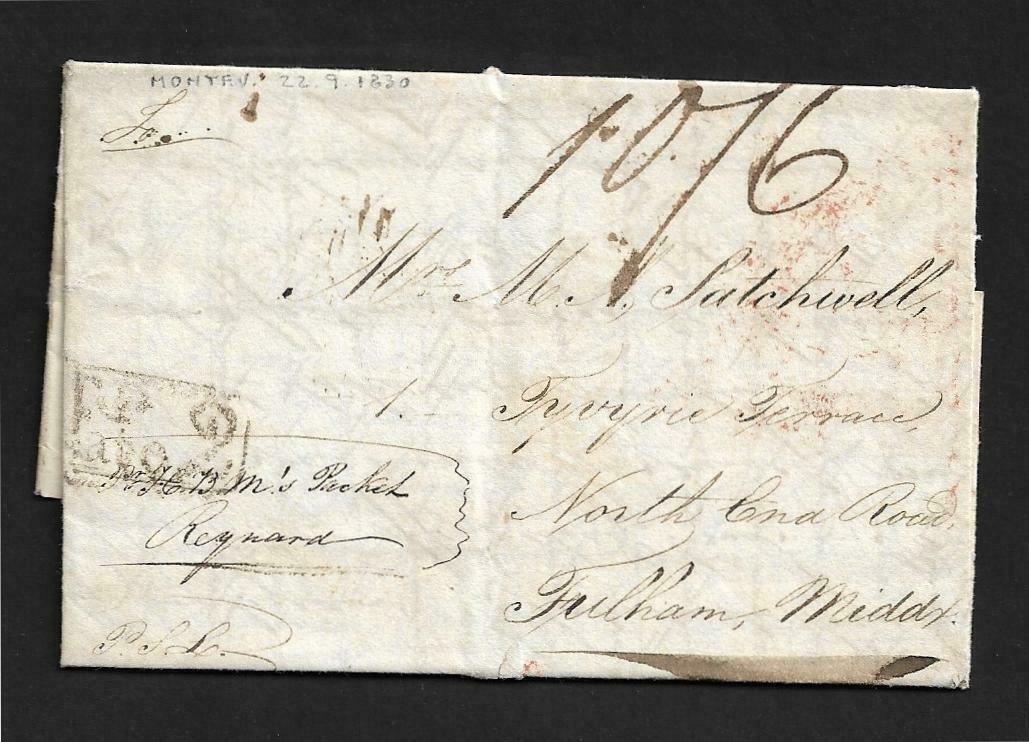 MONTEV. 22.9.1830
10/6
Mrs. M. A. Satchwell,
1. Tyvyrie Terrace
North End Road,
Fulham, Middx.
Pr H.B.M's Packet
Reynard